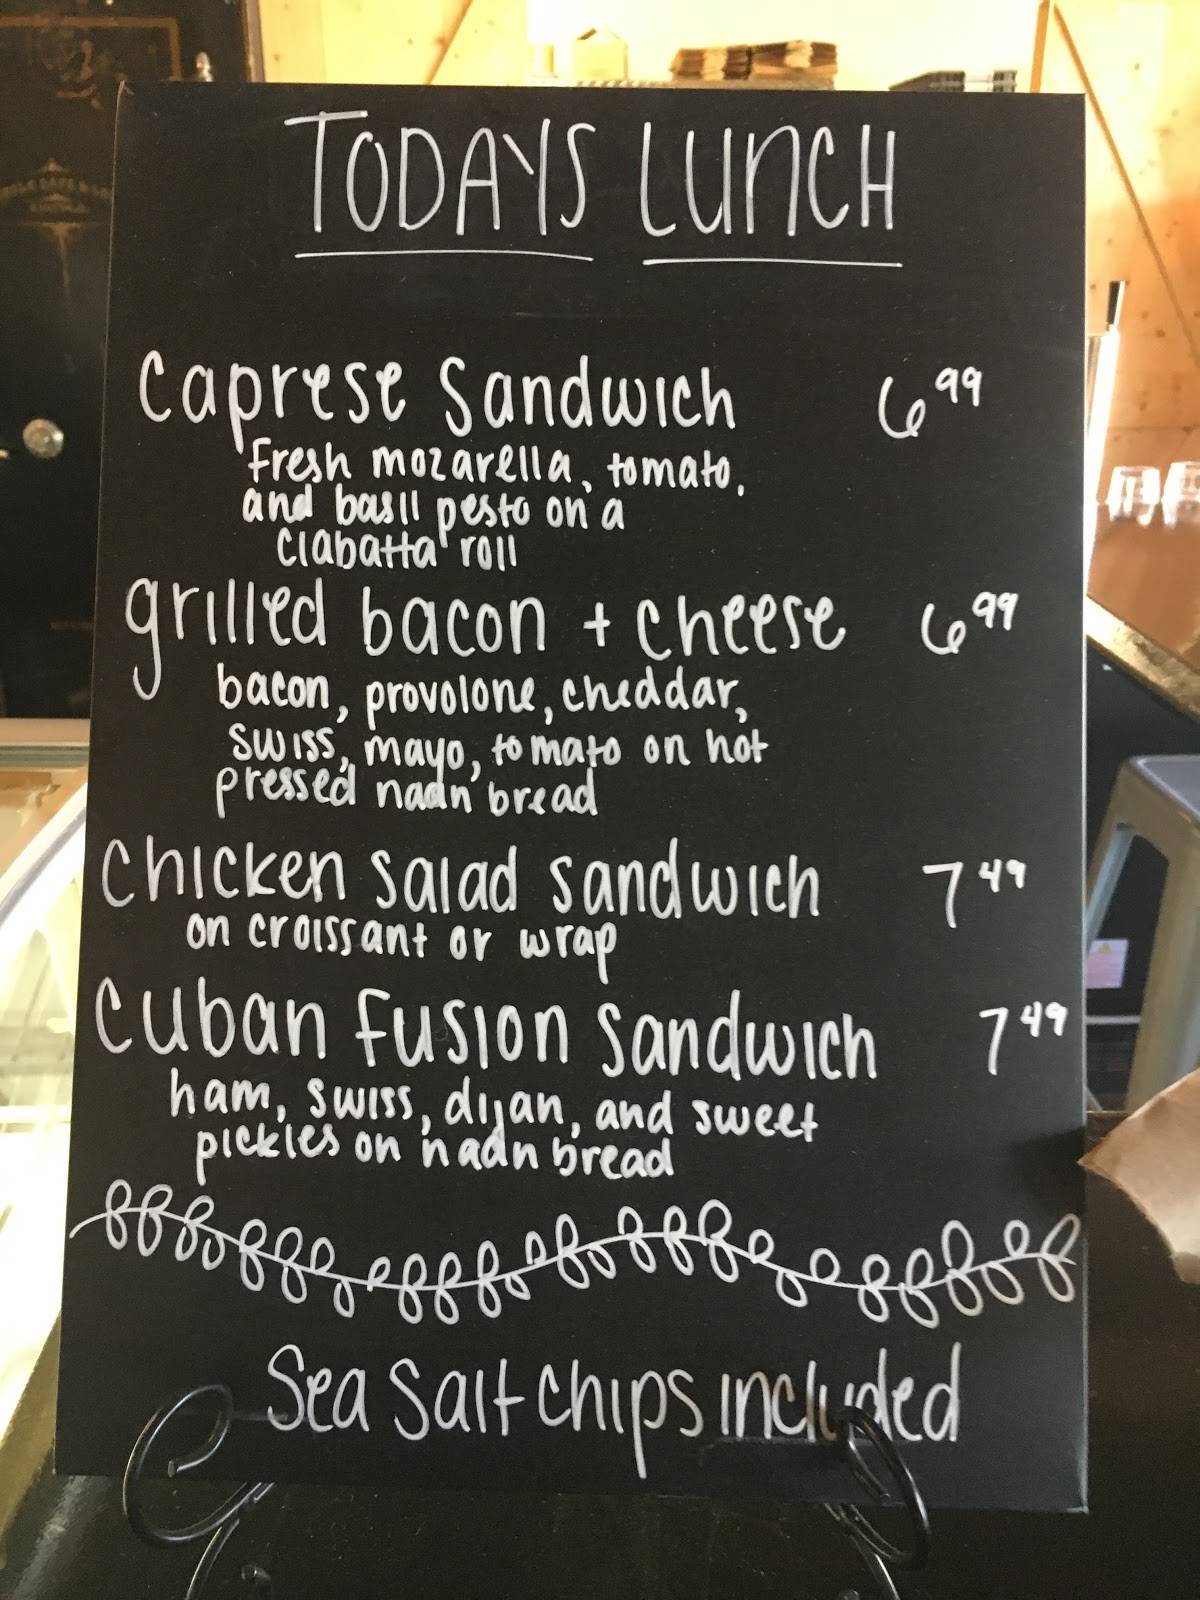 TODAYS LUNCH
Caprese Sandwich 6 99
Fresh mozarella, tomato,
and basil pesto on a
ciabatta roll
grilled bacon + cheese 6 99
bacon, provolone, cheddar,
swiss, mayo, tomato on hot
pressed naan bread
Chicken Salad Sandwich 7 49
on croissant or wrap
Cuban Fusion Sandwich 7 49
ham, swiss, dijan, and sweet
pickles on naan bread
Sea Salt Chips included